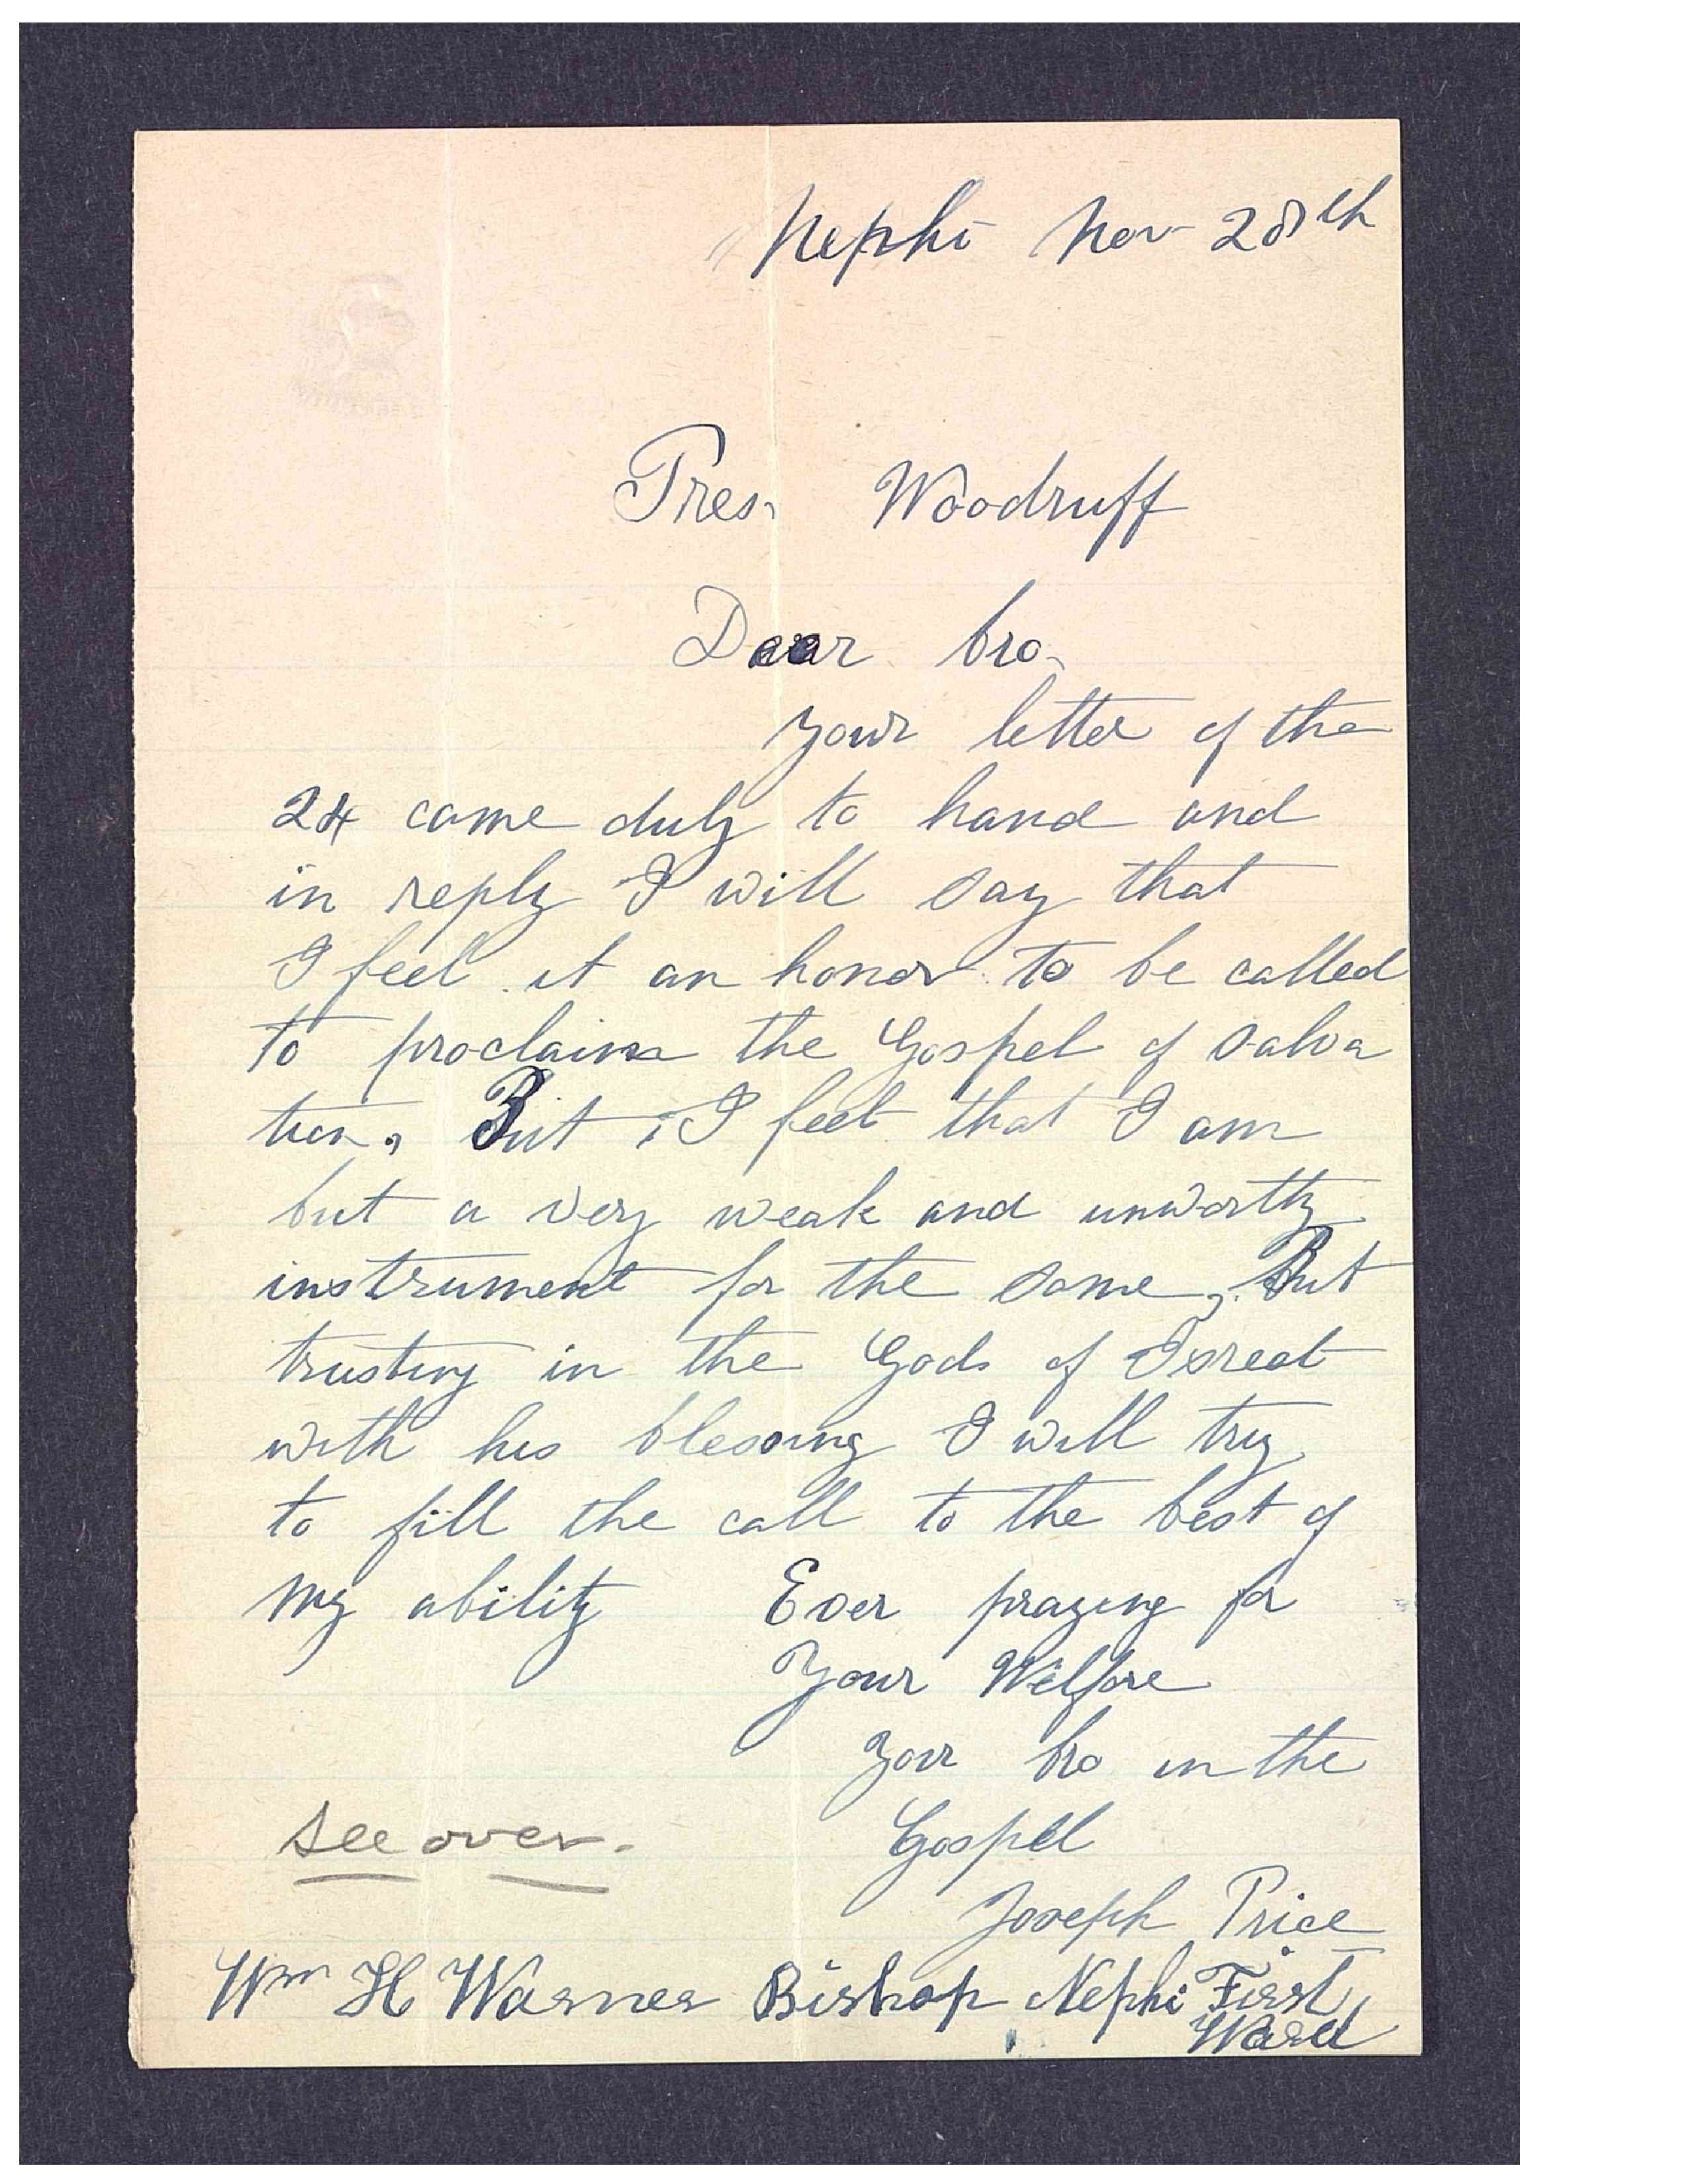 Nephi Nov 28th
Pres. Woodruff
Dear bro.
Your letter of the
24 came duly to hand and
in reply I will say that
I feel it an honor to be called
to proclaim the Gospel of Salva
tion, But I feel that I am
but a very weak and unworthy
instrument for the same, But
trusting in the Gods of Isreal
with his blessing I will try
to fill the call to the best of
my ability Ever praying for
Your Welfare
Your bro in the
Gospel
see over.
Joseph Price
Wm H Warner Bishop Nephi First
Ward